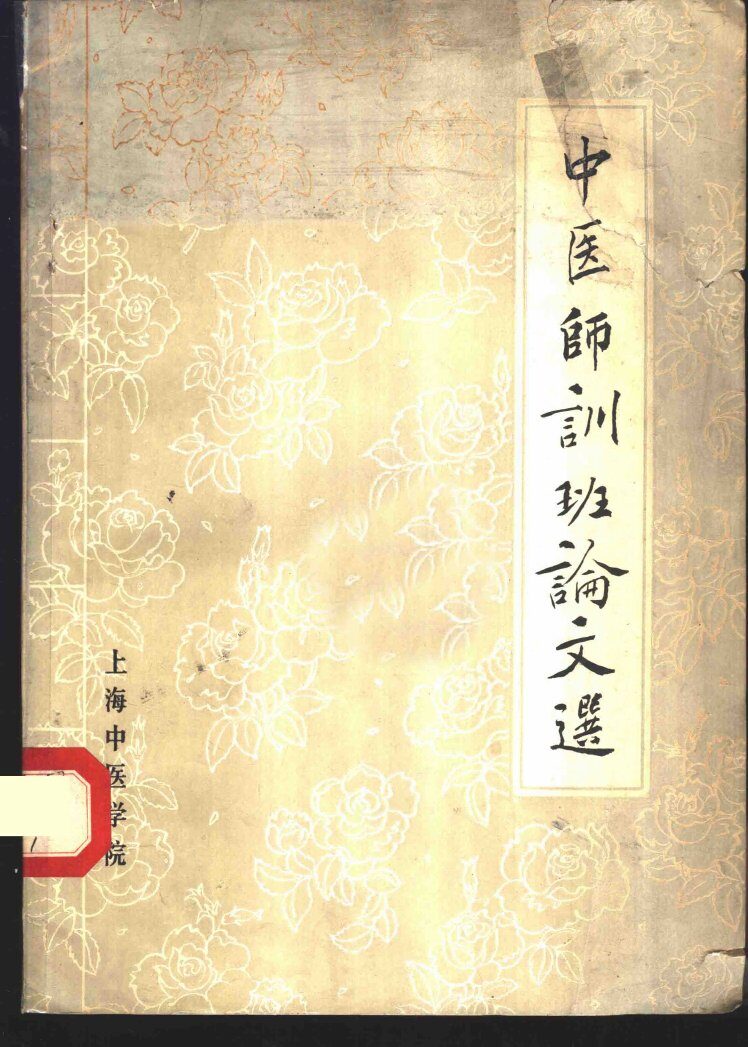 中医師訓班論文選
上海中医学院